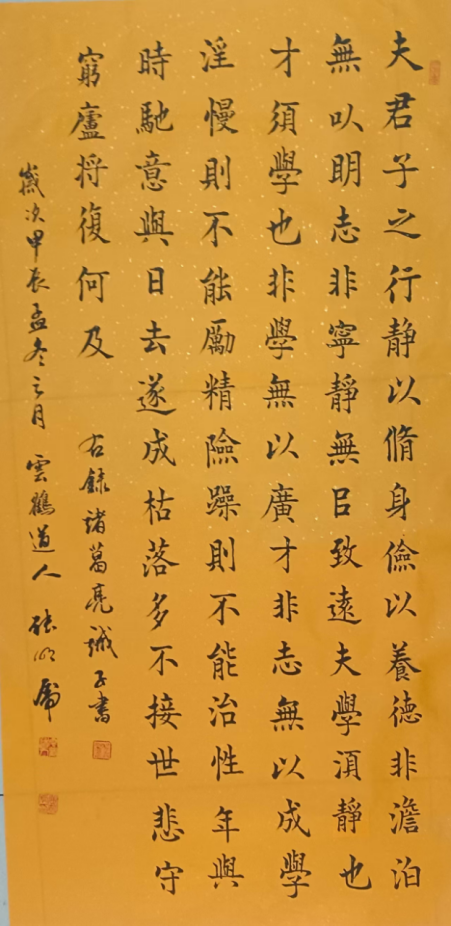 夫君子之行静以脩身儉以養德非澹泊
無㕥明志非寧静無㠯致遠夫學須静也
才須學也非學無以廣才非志無以成學
淫慢則不能勵精險躁則不能治性年與
時馳意與日去遂成枯落多不接世悲守
窮廬将復何及
右録諸葛亮誡子書
歲次甲辰孟冬之月雲鶴道人張